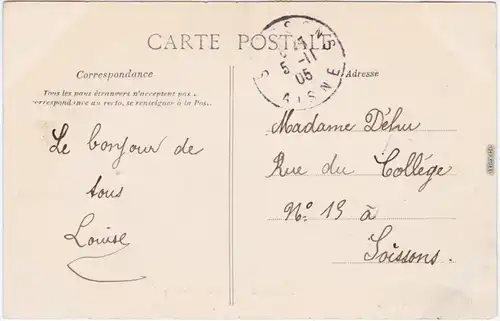 CARTE POSTALE
SOISSONS
5 -11
05
AISNE
Correspondance
Tous les pays étrangers n'acceptent pas
correspondance au recto, se renseigner à la Pos.
Le bonjour de
tous
Louise
Adresse
Madame Déhu
Rue du Collège
N° 13 à
Soissons.